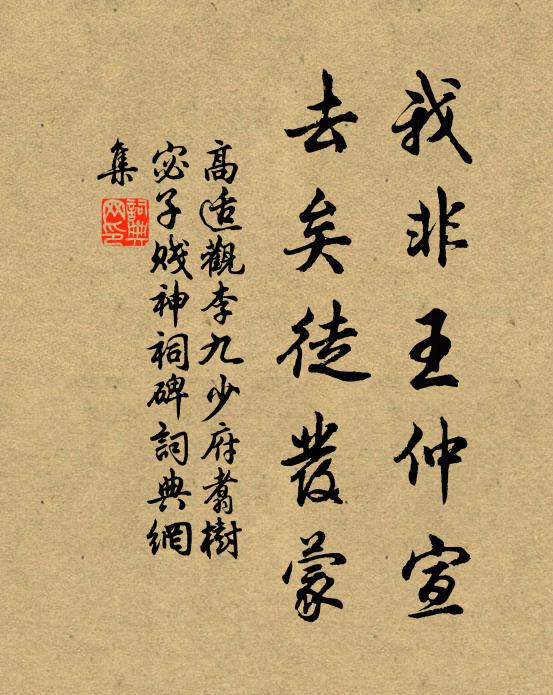 我非王仲宣
去矣徒發蒙
高适觀李九少府翥樹
宓子賤神祠碑詞典網
集
詞典網印